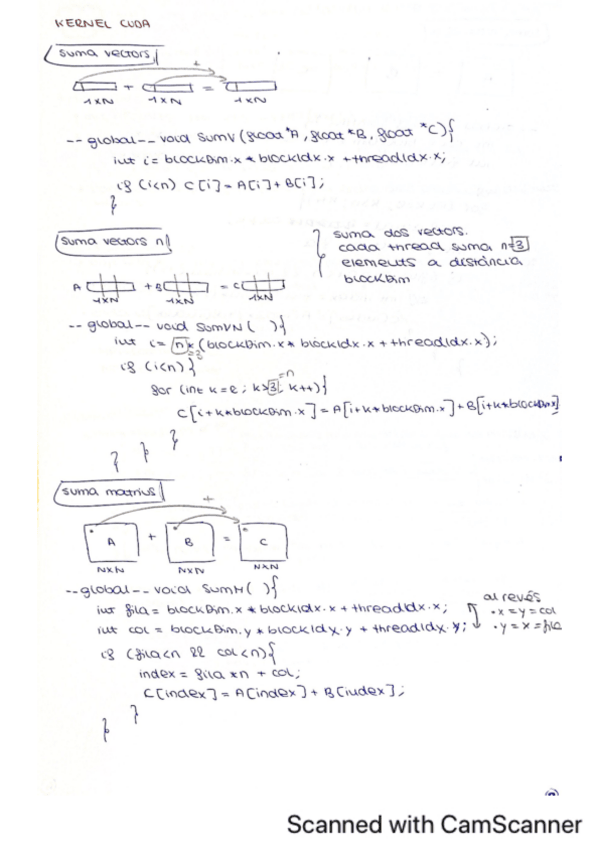 KERNEL CUDA
suma vectors
+
+ =
1xN 1xN 1xN
--global-- void sumV (float *A, float *B, float *C){
int i = blockDim.x * blockIdx.x + threadIdx.x;
if (i<n) C[i] = A[i]+B[i];
}
suma vectors n
suma dos vectors.
cada thread suma n=3
elements a distància
blockDim
A +B =C
1xN 1xN 1xN
--global-- void sumVN ( ){
int i = n * (blockDim.x * blockIdx.x + threadIdx.x);
=3
if (i<n){
=n
for (int k=0; k<3; k++){
C[i+k*blockDim.x] = A[i+k*blockDim.x]+B[i+k*blockDim.x]
} } }
suma matrius
+
A + B = C
NxN NxN NxN
--global-- void sumM ( ){
int fila = blockDim.x * blockIdx.x + threadIdx.x;
int col = blockDim.y * blockIdy.y + threadIdx.y;
al revés
· x = y = col
· y = x = fila
if (fila<n && col<n){
index = fila *n + col;
C[index] = A[index] + B[index];
}
}
Scanned with CamScanner